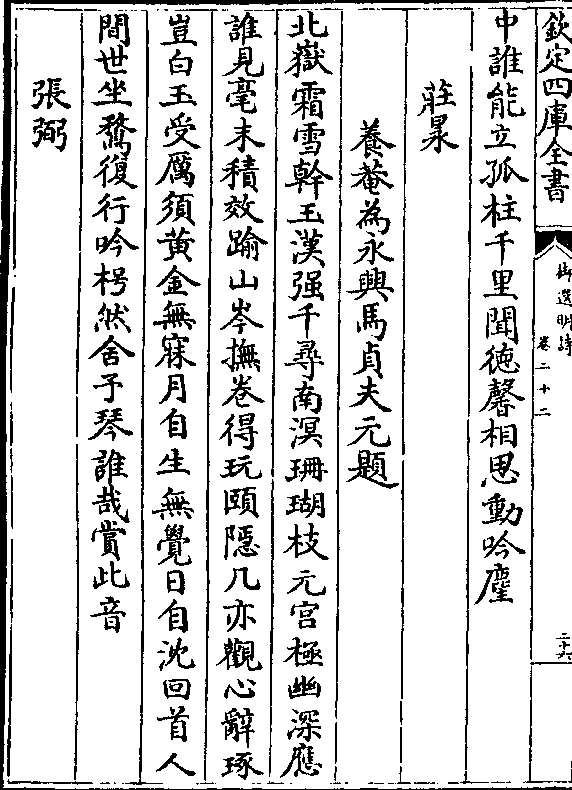 欽定四庫全書
御選明詩
卷二十二
二十六
中誰能立孤柱千里聞徳馨相思動吟麈
莊㫤
養菴為永興馬貞夫元題
北嶽霜雪幹玉漢强千尋南溟珊瑚枝元宫極幽深應
誰見毫末積效踰山岑撫卷得玩頤隱几亦觀心辭琢
豈白玉受厲須黄金無寐月自生無覺日自沈回首人
間世坐鶩復行吟枵然舍予琴誰哉賞此音
張弼